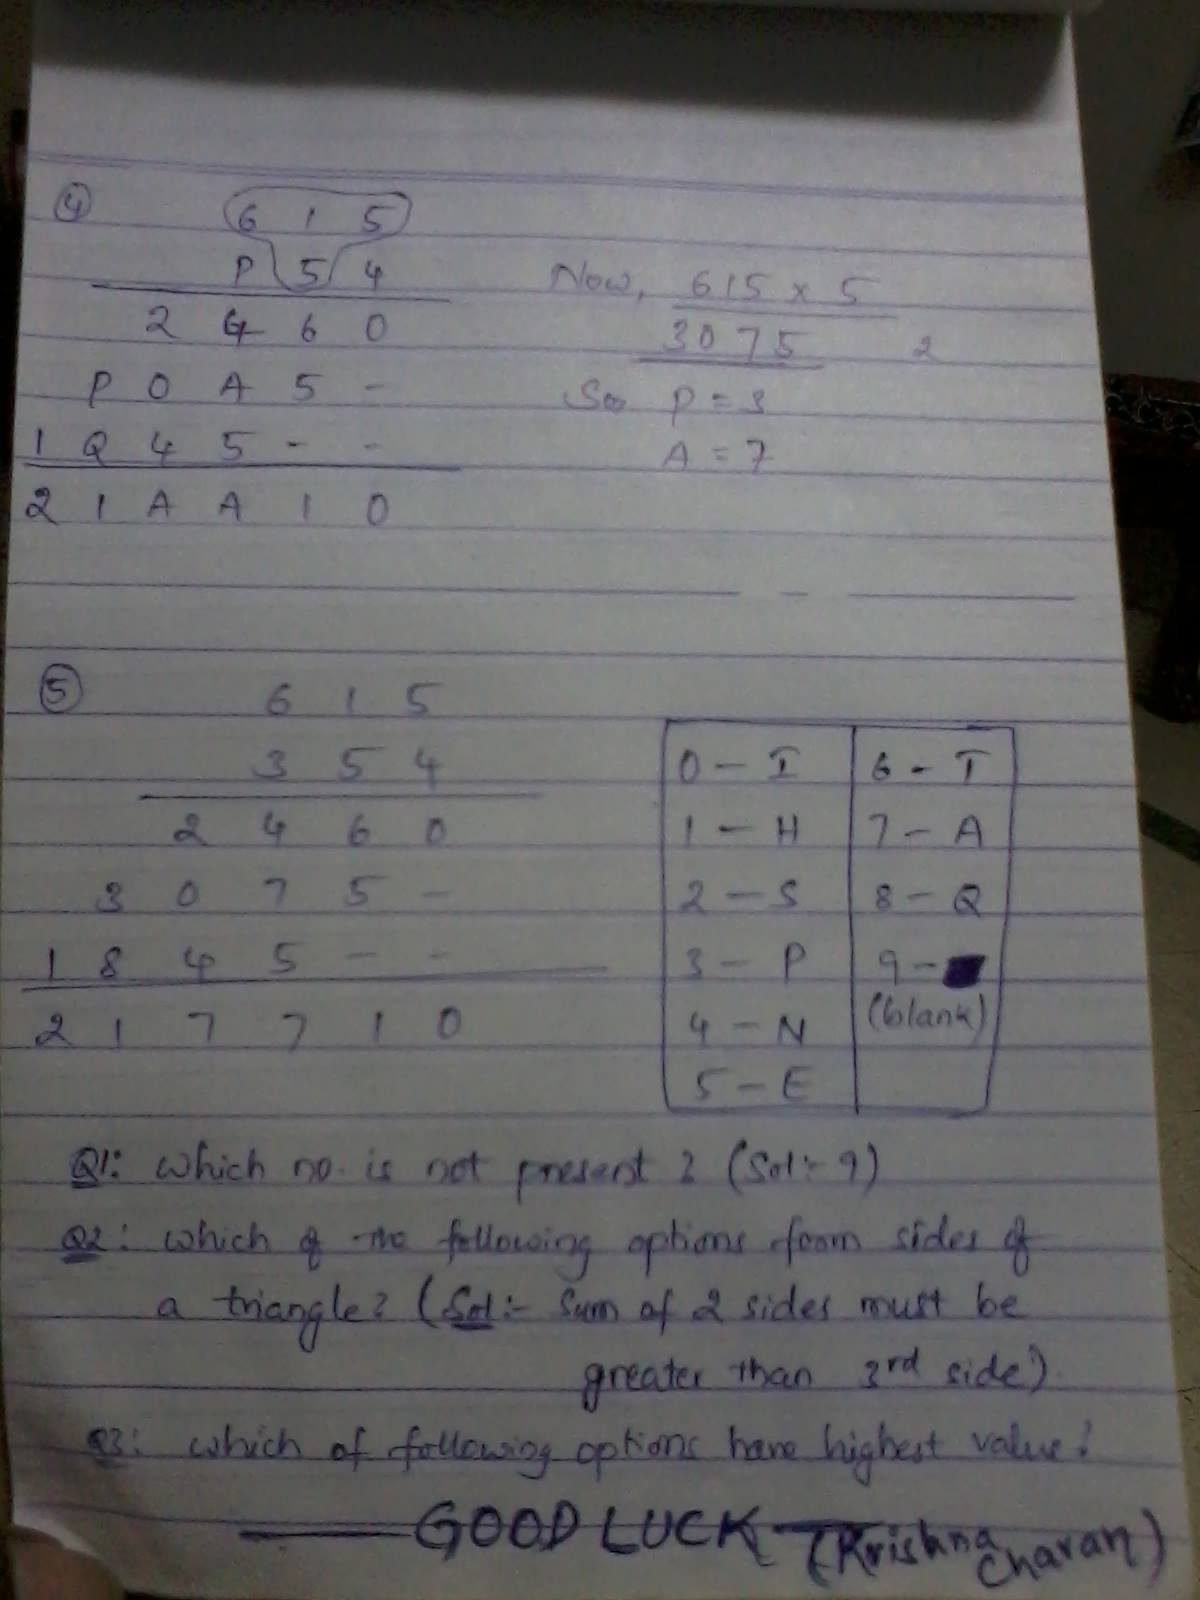 4
6 1 5
P 5 4
Now, 615 x 5
2 4 6 0
3075 2
P 0 A 5 -
So P = 3
1 Q 4 5 - -
A = 7
2 1 A A 1 0
5
6 1 5
3 5 4
2 4 6 0
3 0 7 5 -
1 8 4 5 - -
2 1 7 7 1 0
0 - I 6 - T
1 - H 7 - A
2 - S 8 - Q
3 - P 9 -
4 - N (blank)
5 - E
Q1: which no. is not present? (Sol:- 9)
Q2: which of the following options form sides of
a triangle? (Sol:- Sum of 2 sides must be
greater than 3rd side)
Q3: which of following options have highest value?
GOOD LUCK
(Krishna
Charan)